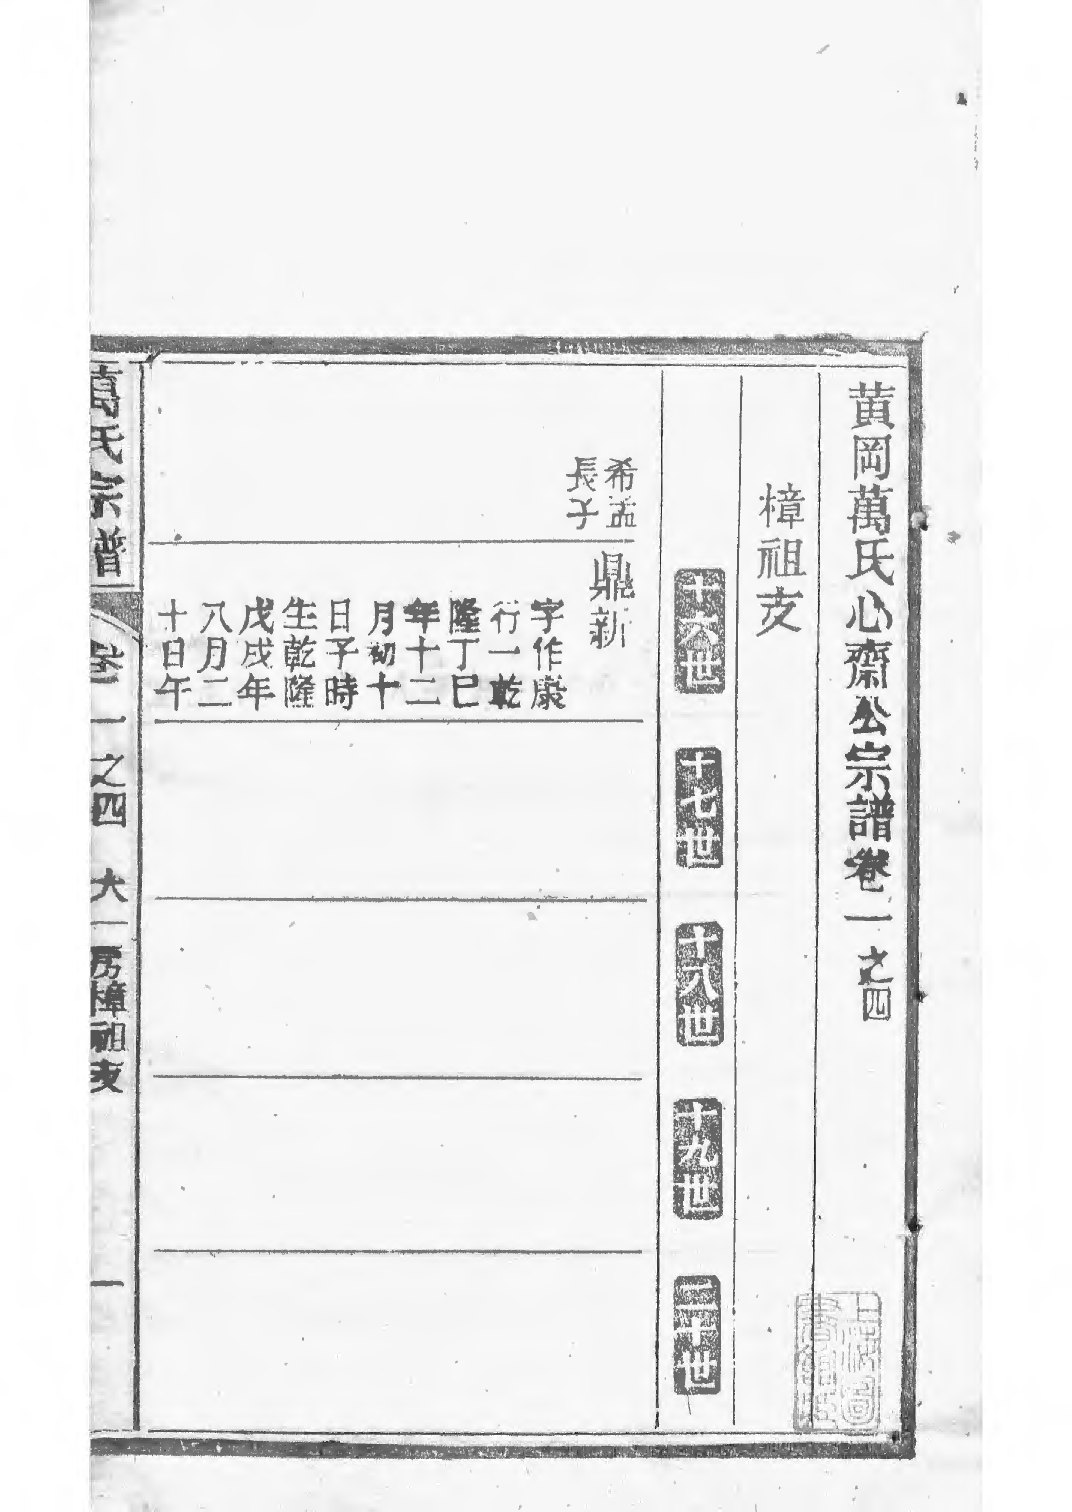 黃岡萬氏心齋公宗譜卷一之四
樟祖支
十六世
十七世
十八世
十九世
二十世
希孟
長子
鼎新
字作康
行一乾
隆丁巳
年十二
月初十
日子時
生乾隆
戊戌年
八月二
十日午
萬氏宗譜
卷一之四 大一房樟祖支
一